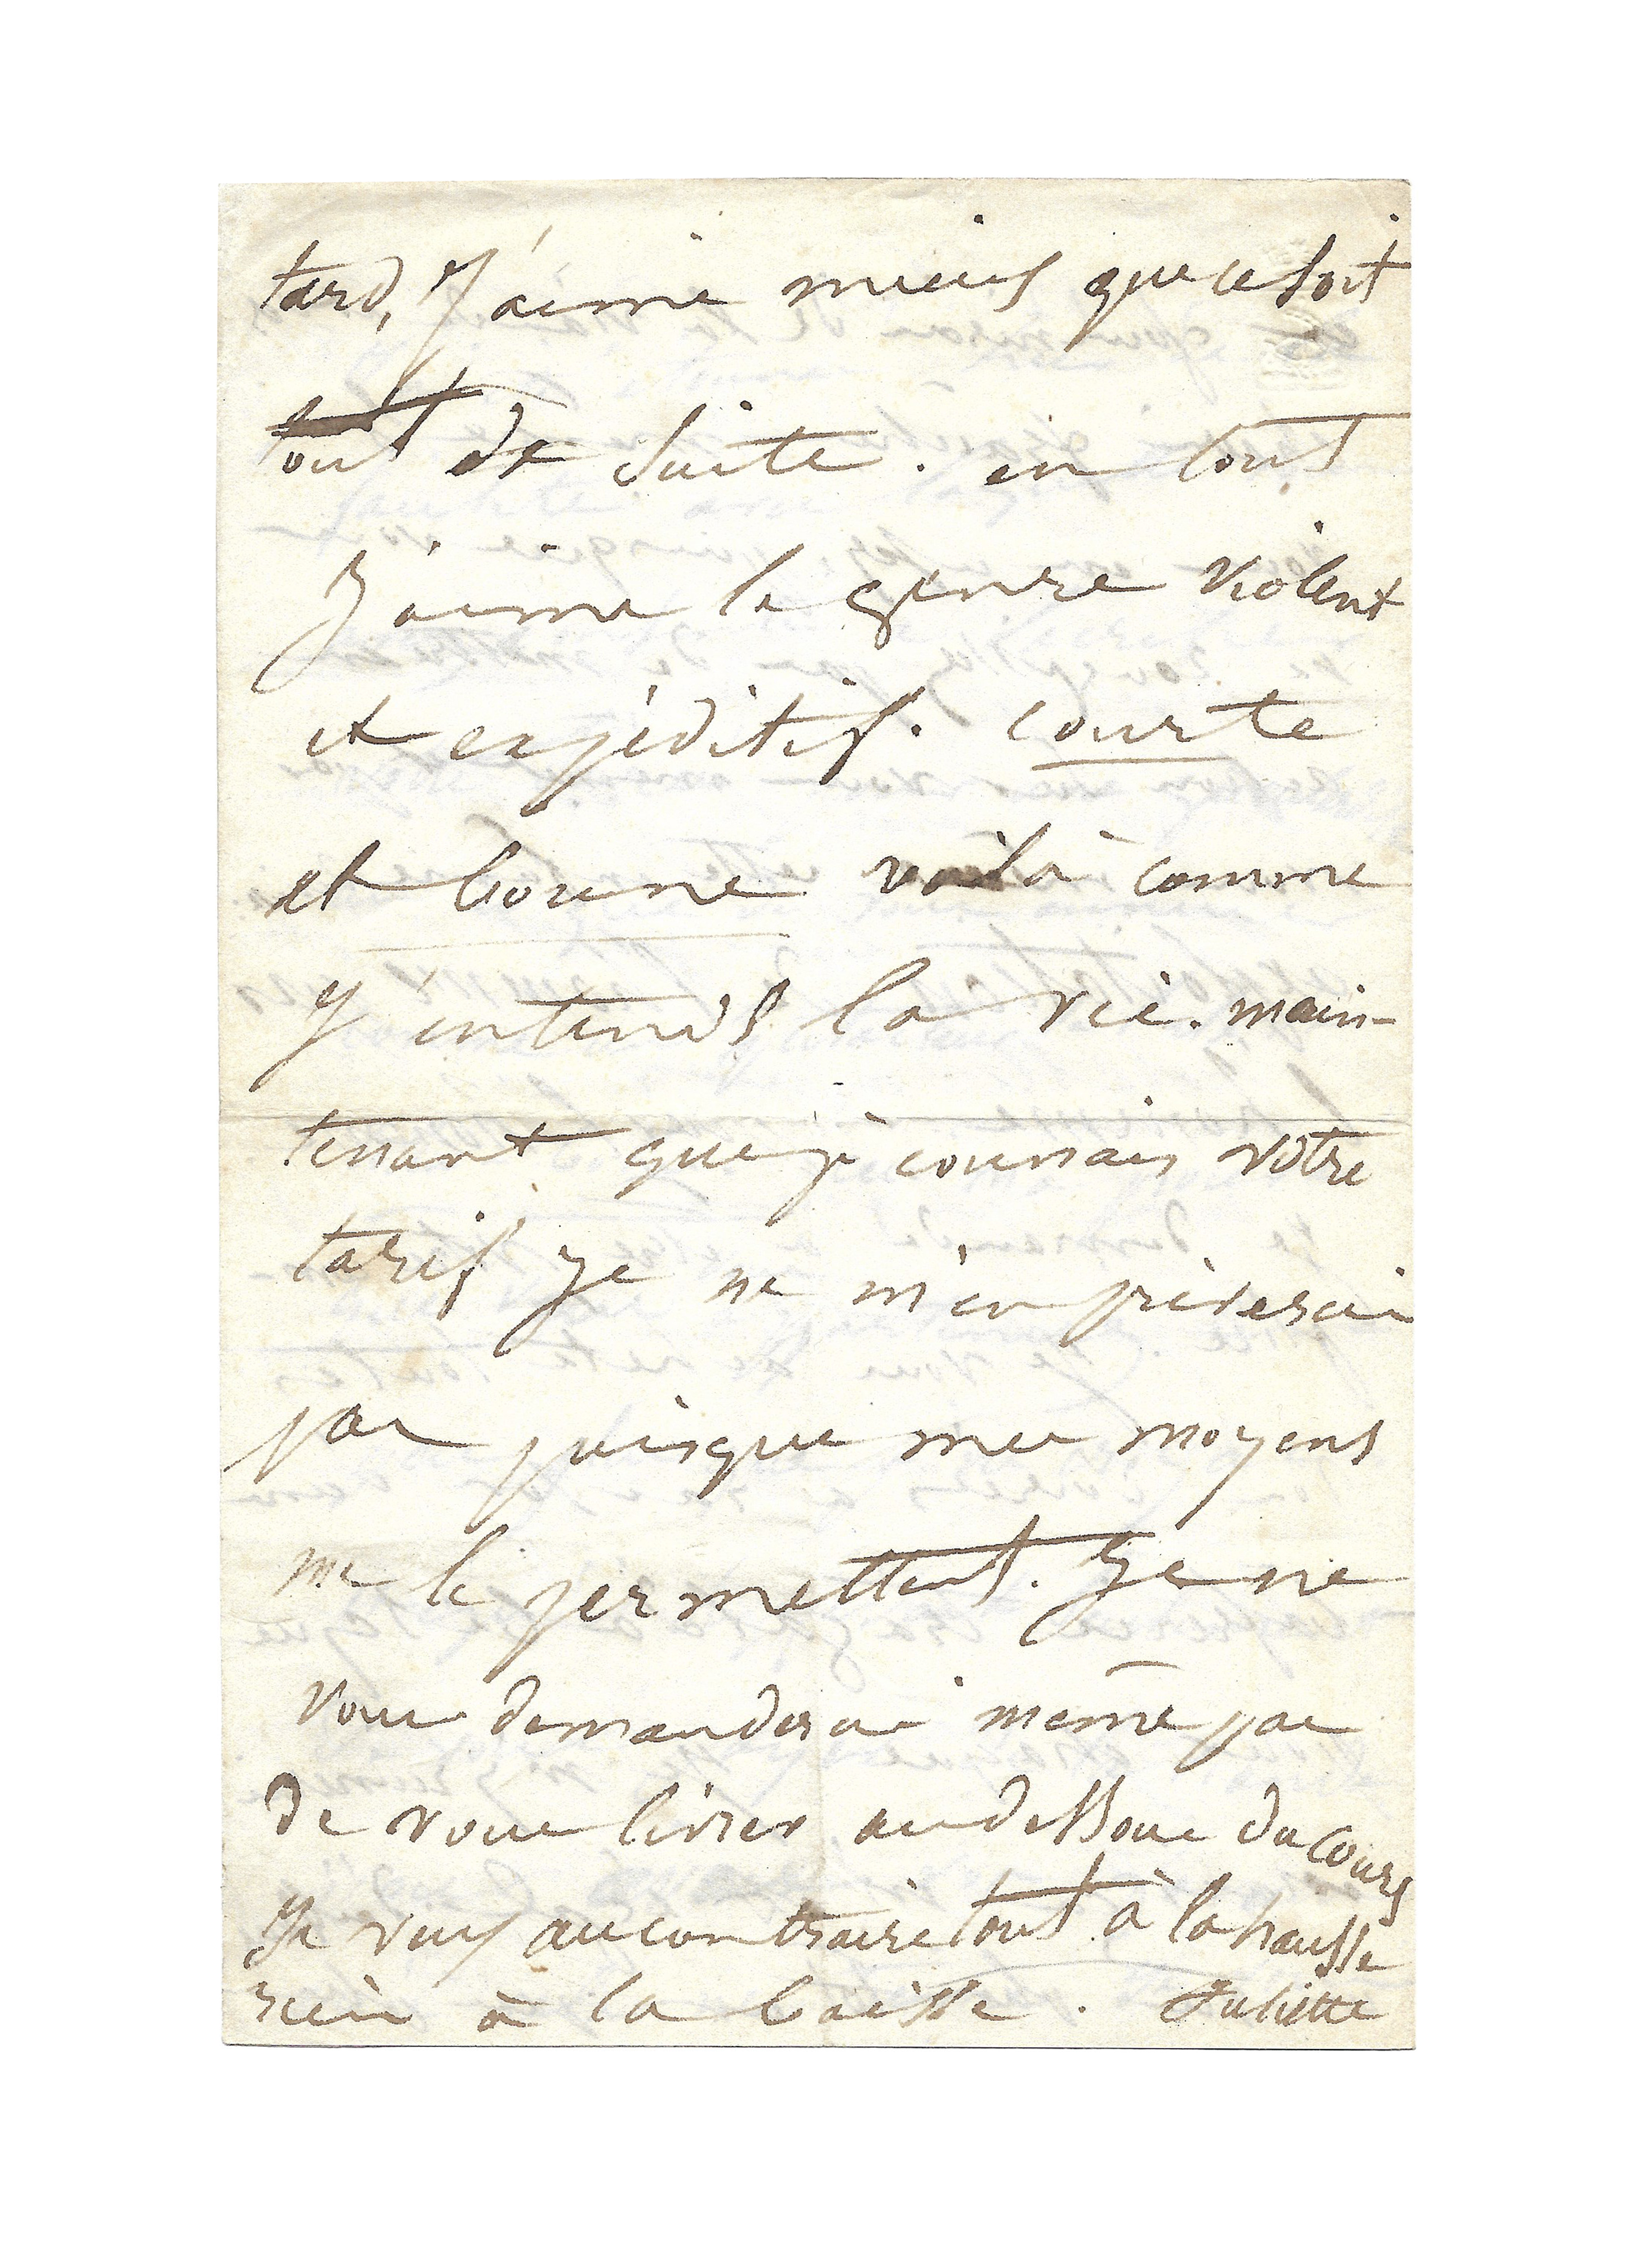 tard, J'aime mieux que ce soit
tout de suite. en tout
J'aime le genre violent
et expéditif. courte
et bonne voilà comme
j'entends la vie. main-
tenant que je connais votre
tarif je ne m'en priverai
pas puisque mes moyens
me le permettent. Je ne
vous demanderai même pas
de vous livrer au dessous du cours
Je veux au contraire tout à la hausse
rien à la baisse. Juliette